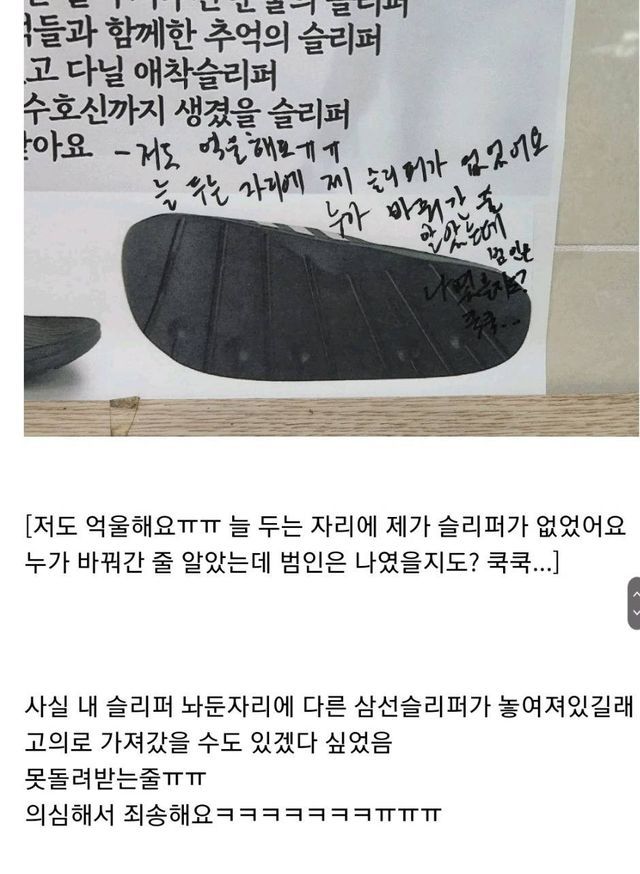 들과 함께한 추억의 슬리퍼
고 다닐 애착슬리퍼
수호신까지 생겼을 슬리퍼
아요 - 저도 억울해요ㅠㅠ
늘 두는 자리에 제 슬리퍼가 없었어요
누가 바꿔간 줄
알았는데
범인은
나였을지도?
쿡쿡...
[저도 억울해요ㅠㅠ 늘 두는 자리에 제가 슬리퍼가 없었어요
누가 바꿔간 줄 알았는데 범인은 나였을지도? 쿡쿡...]
사실 내 슬리퍼 놔둔자리에 다른 삼선슬리퍼가 놓여져있길래
고의로 가져갔을 수도 있겠다 싶었음
못돌려받는줄ㅠㅠ
의심해서 죄송해요ㅋㅋㅋㅋㅋㅋㅋㅠㅠㅠ